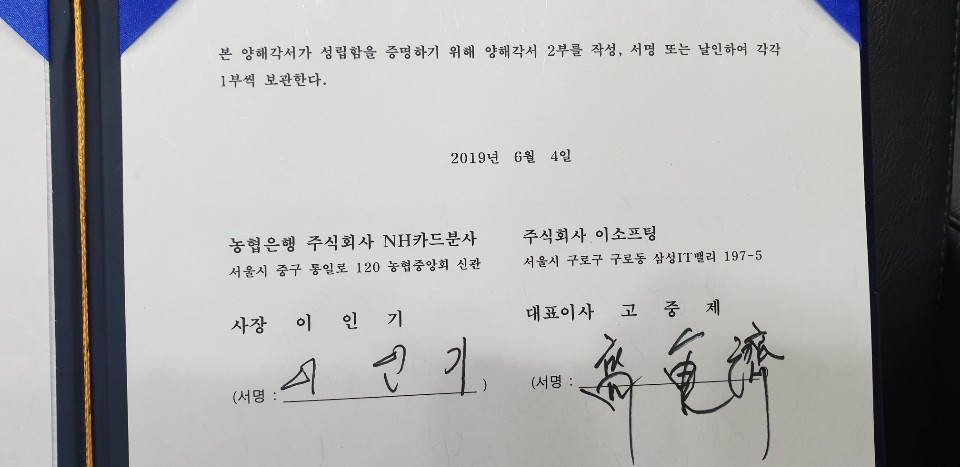 본 양해각서가 성립함을 증명하기 위해 양해각서 2부를 작성, 서명 또는 날인하여 각각
1부씩 보관한다.
2019년 6월 4일
농협은행 주식회사 NH카드분사
서울시 중구 통일로 120 농협중앙회 신관
사장 이 인 기
(서명 : 이인기 )
주식회사 이소프팅
서울시 구로구 구로동 삼성IT밸리 197-5
대표이사 고 중 제
(서명 :